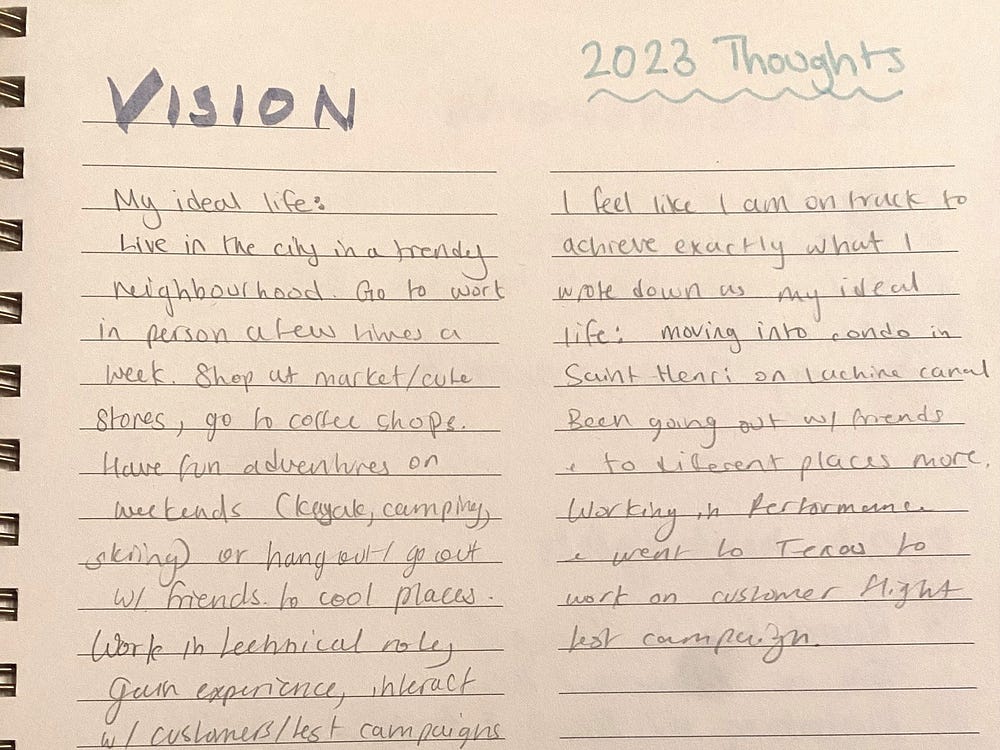 VISION
My ideal life:
Live in the city in a trendy
neighbourhood. Go to work
in person a few times a
week. Shop at market/cute
stores, go to coffee shops.
Have fun adventures on
weekends (kayak, camping,
skiing) or hang out / go out
w/ friends. to cool places.
Work in technical role,
gain experience, interact
w/ customers/test campaigns
2023 Thoughts
I feel like I am on track to
achieve exactly what I
wrote down as my ideal
life: moving into condo in
Saint-Henri on Lachine canal
Been going out w/ friends
& to different places more.
Working in Performance.
& went to Texas to
work on customer flight
test campaign.